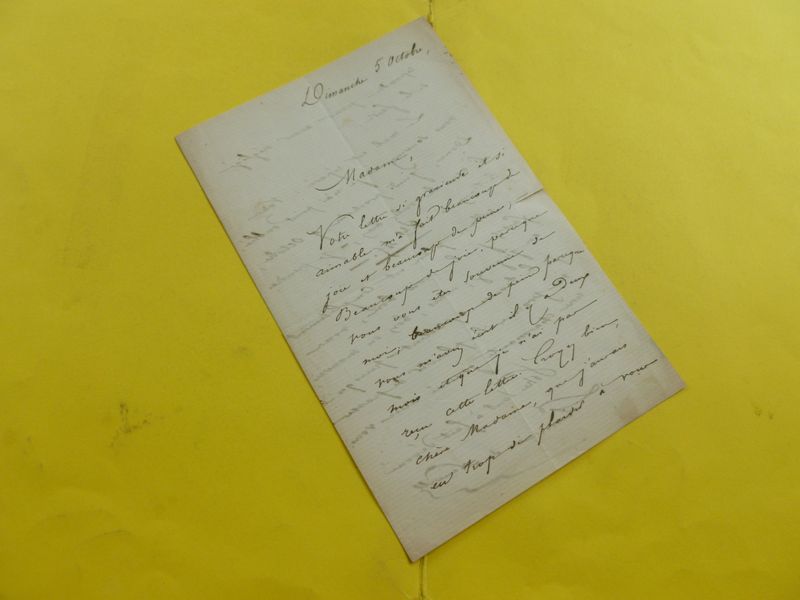 Dimanche 5 Octobre,
Madame,
Votre lettre si gracieuse et si
aimable m'a fait beaucoup de
joie et beaucoup de peine,
Beaucoup de joie, parceque
vous vous êtes souvenue de
moi, beaucoup de peine parceque
vous m'avez écrit il y a deux
mois et que je n'ai pas
reçu cette lettre. Croyez bien,
chère Madame, que j'aurais
eu trop de plaisir à vous